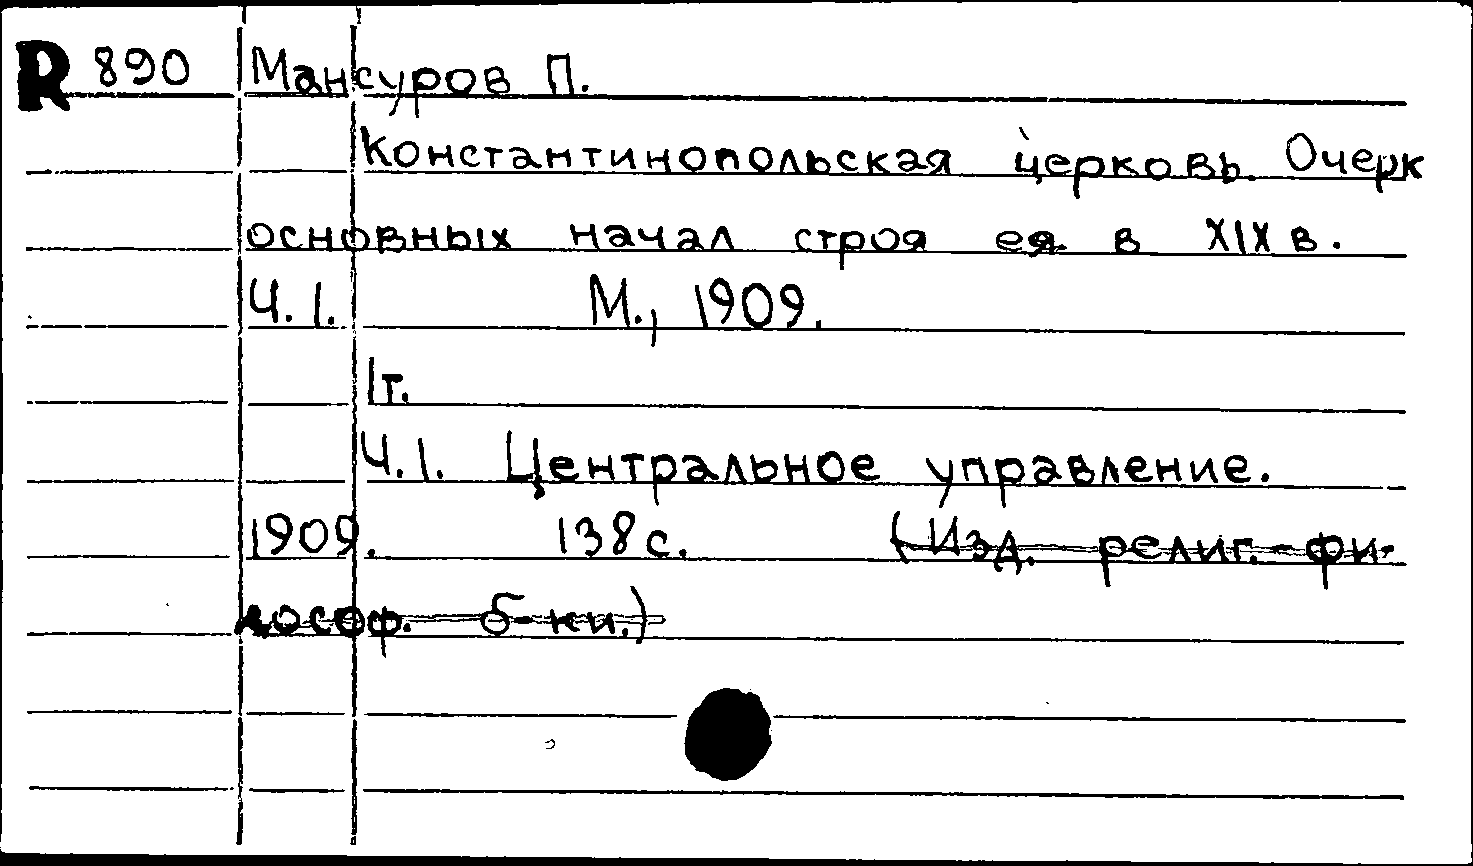 R 890 Мансуров П.
Константинопольская церковь. Очерк
основных начал строя ея в XIX в.
Ч. 1. М., 1909.
1т.
Ч. 1. Центральное управление.
1909. 138 с. (Изд. религ.-фи-
лософ. б-ки.)